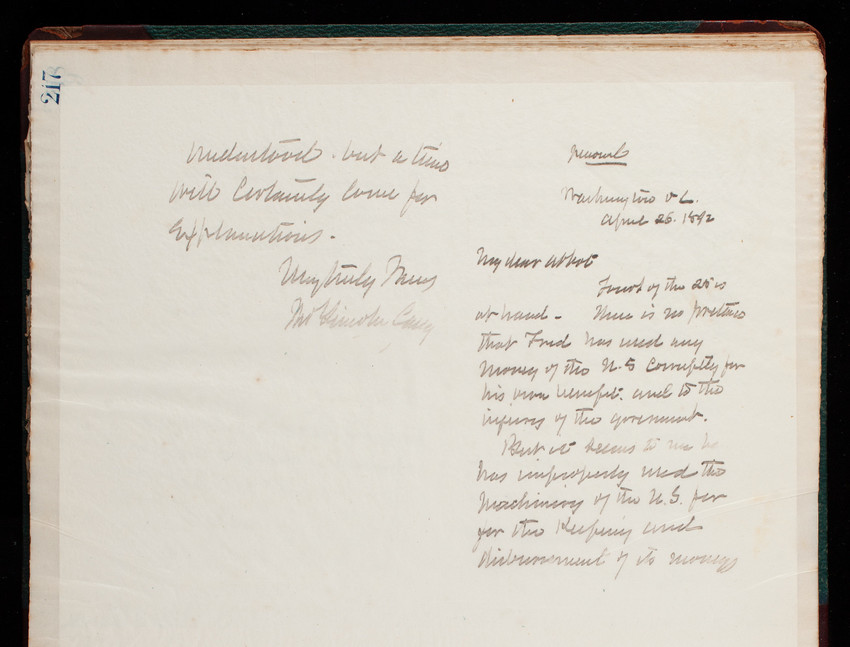 217
understood. but a time
will certainly come for
explanations.
Very truly Yours
Thos Lincoln Casey
personal
Washington D.C.
April 26. 1892
My dear Abbot
Yours of the 25 is
at hand. There is no pretense
that Fred has used any
money of the U.S corruptly for
his own benefit. and to the
injury of the government.
But it seems to me he
has improperly used the
machinery of the U.S. for
for the keeping and
disbursement of its moneys